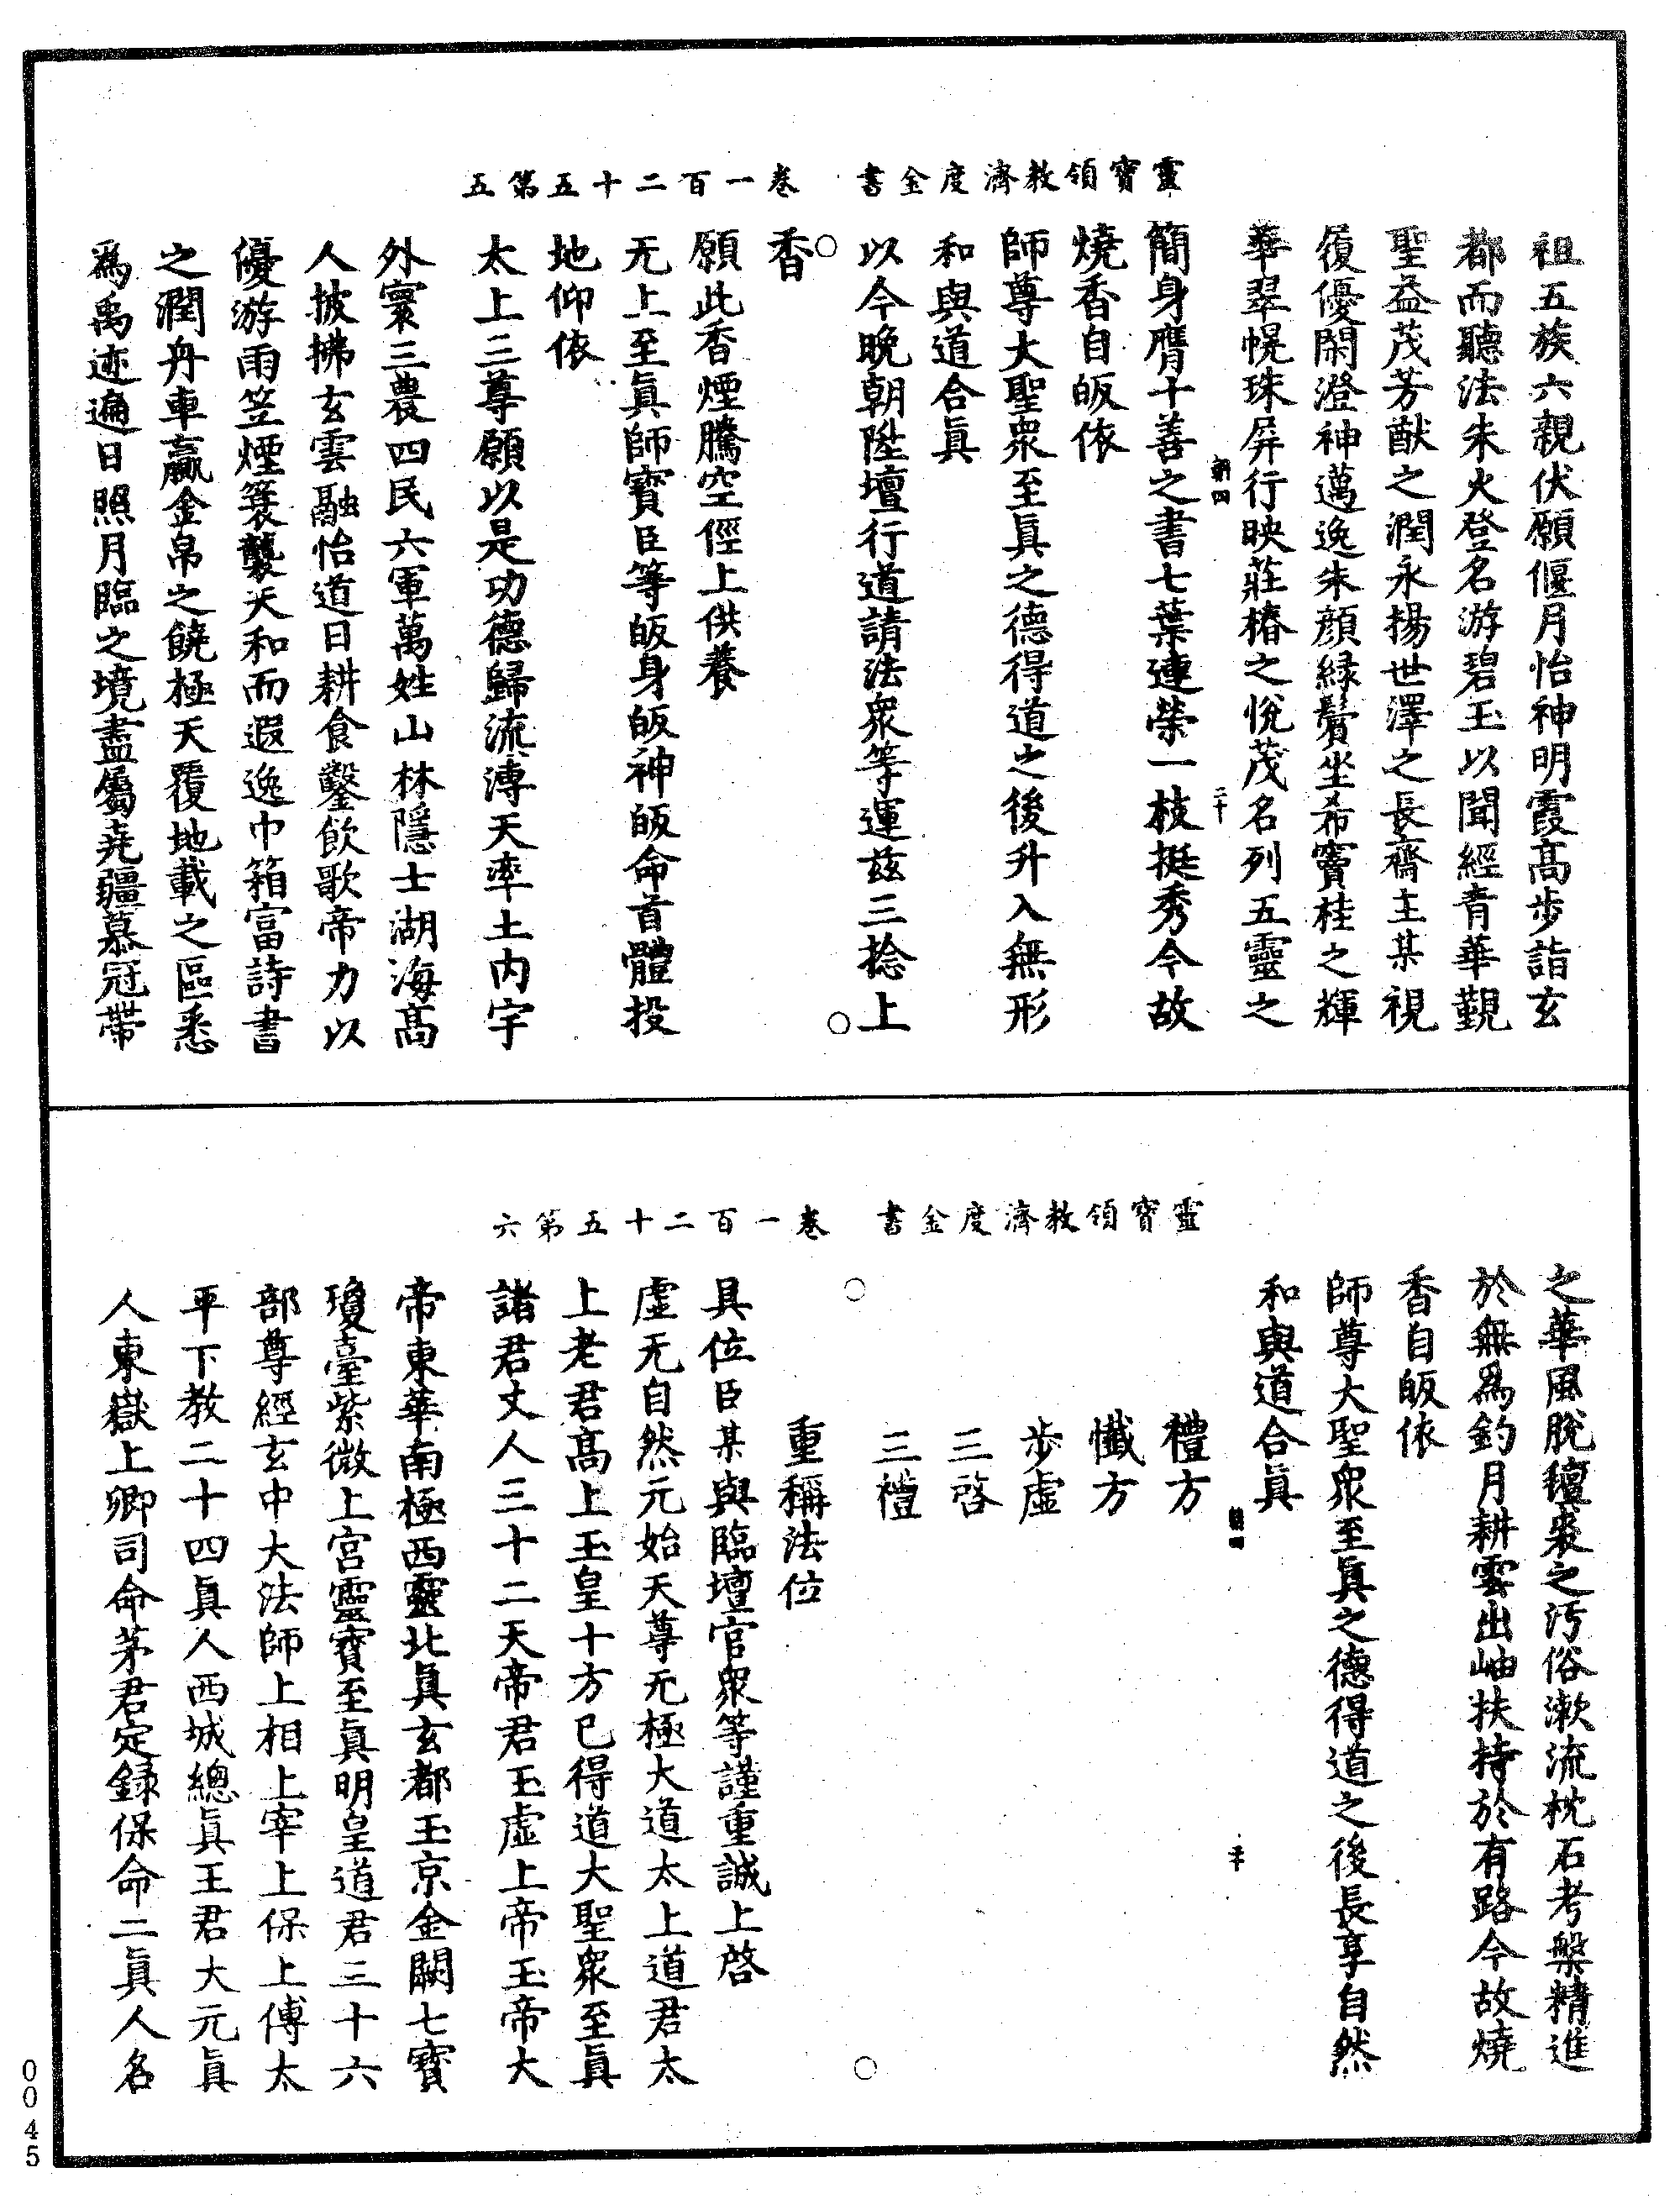 靈寶領教濟度金書　卷一百二十五第五
祖五族六親伏願偃月怡神明霞高步詣玄
都而聽法朱火登名游碧玉以聞經青華覲
聖益茂芳猷之潤永揚世澤之長齋主某視
履優閑澄神邁逸朱顏綠鬢坐希竇桂之輝
華翠幌珠屏行映莊椿之悅茂名列五靈之
朝四　二十
簡身膺十善之書七葉連榮一枝挺秀今故
燒香自皈依
師尊大聖眾至眞之德得道之後升入無形
和與道合眞
以今晚朝陞壇行道請法眾等運茲三捻上
香
願此香煙騰空徑上供養
无上至眞師寶臣等皈身皈神皈命首體投
地仰依
太上三尊願以是功德歸流溥天率土内宇
外寰三農四民六軍萬姓山林隱士湖海高
人披拂玄雲融怡道日耕食鑿飲歌帝力以
優游雨笠煙簑襲天和而遐逸巾箱富詩書
之潤舟車贏金帛之饒極天覆地載之區悉
為禹迹遍日照月臨之境盡屬堯疆慕冠帶
靈寶領教濟度金書　卷一百二十五第六
之華風脫氊裘之汚俗漱流枕石考槃精進
於無為釣月耕雲出岫扶持於有路今故燒
香自皈依
師尊大聖眾至眞之德得道之後長享自然
和與道合眞
禮方
懺方
步虛
三啓
三禮
重稱法位
具位臣某與臨壇官眾等謹重誠上啓
虛无自然元始天尊无極大道太上道君太
上老君高上玉皇十方已得道大聖眾至眞
諸君丈人三十二天帝君玉虛上帝玉帝大
帝東華南極西靈北眞玄都玉京金闕七寶
瓊臺紫微上宮靈寶至眞明皇道君三十六
部尊經玄中大法師上相上宰上保上傅太
平下教二十四眞人西城總眞王君大元眞
人東嶽上卿司命茅君定錄保命二眞人名
0045